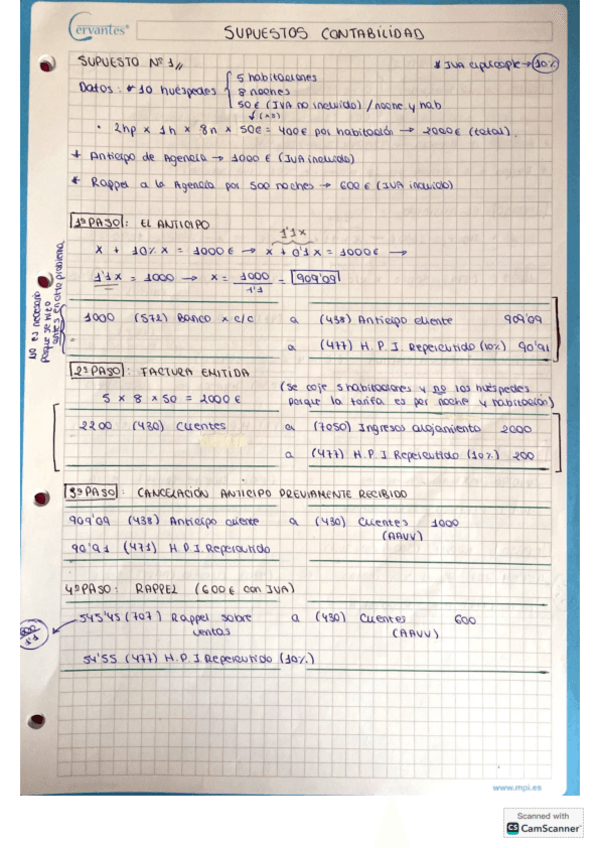 Cervantes®
SUPUESTOS CONTABILIDAD
SUPUESTO Nº 1
* IVA aplicable → 10%
Datos: * 10 huéspedes
5 habitaciones
8 noches
50 € (IVA no incluido) / noche y hab
(AD)
· 2hp x 1h x 8n x 50€ = 400€ por habitación → 2000€ (total).
* Anticipo de Agencia → 1000 € (IVA incluido)
* Rappel a la Agencia por 500 noches → 600 € (IVA incluido)
1º PASO: EL ANTICIPO
1'1x
x + 10% x = 1000 € → x + 0'1 x = 1000€ →
1'1x = 1000 → x = 1000 / 1'1 = 909'09
No es necesario porque se hizo antes en otro problema
1000 (572) Banco x c/c a (438) Anticipo cliente 909'09
a (477) H.P.I. Repercutido (10%) 90'91
2º PASO: FACTURA EMITIDA
(se coje 5 habitaciones y no los huéspedes
porque la tarifa es por noche y habitación)
5 x 8 x 50 = 2000 €
2200 (430) Clientes a (7050) Ingresos alojamiento 2000
a (477) H.P.I Repercutido (10%) 200
3º PASO: CANCELACIÓN ANTICIPO PREVIAMENTE RECIBIDO
909'09 (438) Anticipo cliente a (430) Clientes 1000
(AAVV)
90'91 (477) H.P.I Repercutido
4º PASO: RAPPEL (600€ con IVA)
600
1'1
545'45 (707) Rappel sobre ventas a (430) Clientes 600
(AAVV)
54'55 (477) H.P.I Repercutido (10%)
www.mpi.es
Scanned with
CS CamScanner